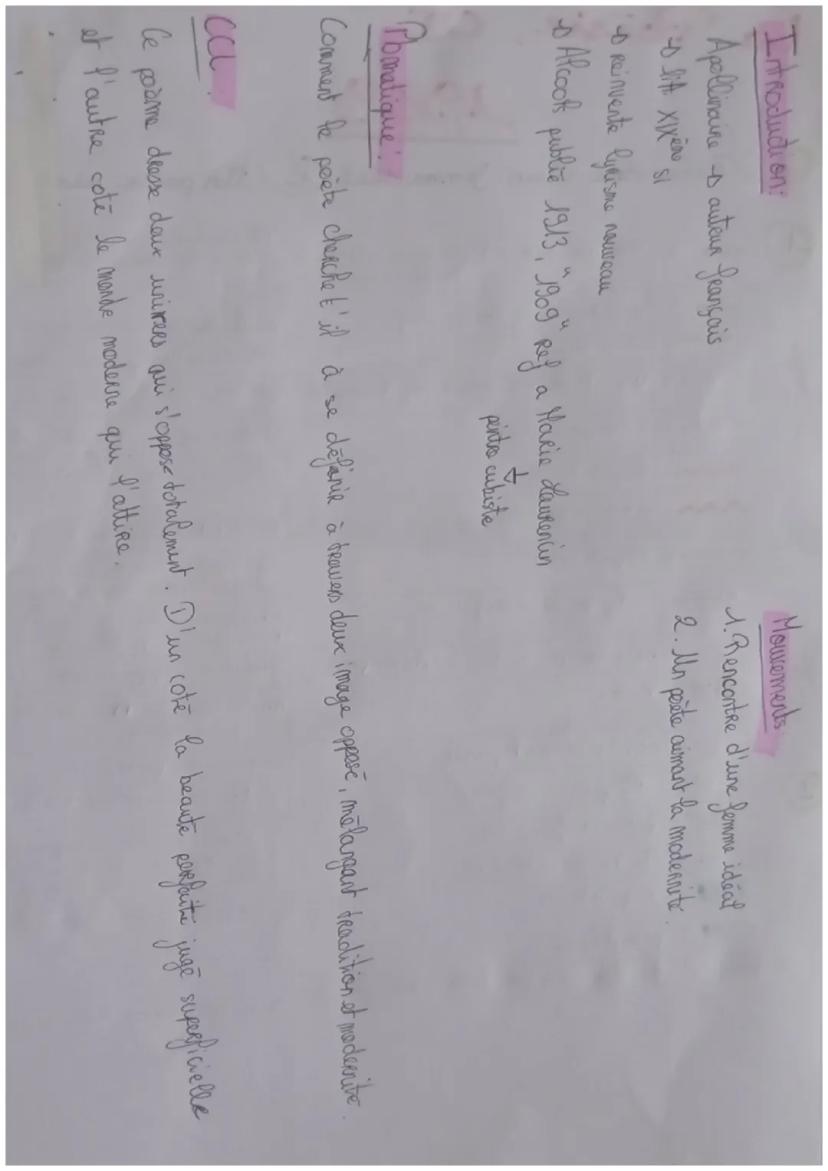 Introduction:
Apollinaire → auteur français
→ litt XIXème si
→ réinvente lyrisme nouveau
→ Alcools publié 1913, "1909" Ref a Marie Laurencin
↓
pintre cubiste
Mouvements
1. Rencontre d'une femme idéal
2. Un poète aimant la modernité.
Pbmatique:
Comment le poète cherche t'il à se définir à travers deux image opposé, mélangant tradition et modernité.
CCL:
Ce poème dresse deux univers qui s'oppose totalement. D'un coté la beauté parfaite jugé superficielle
et l'autre coté le monde moderne qui l'attire.